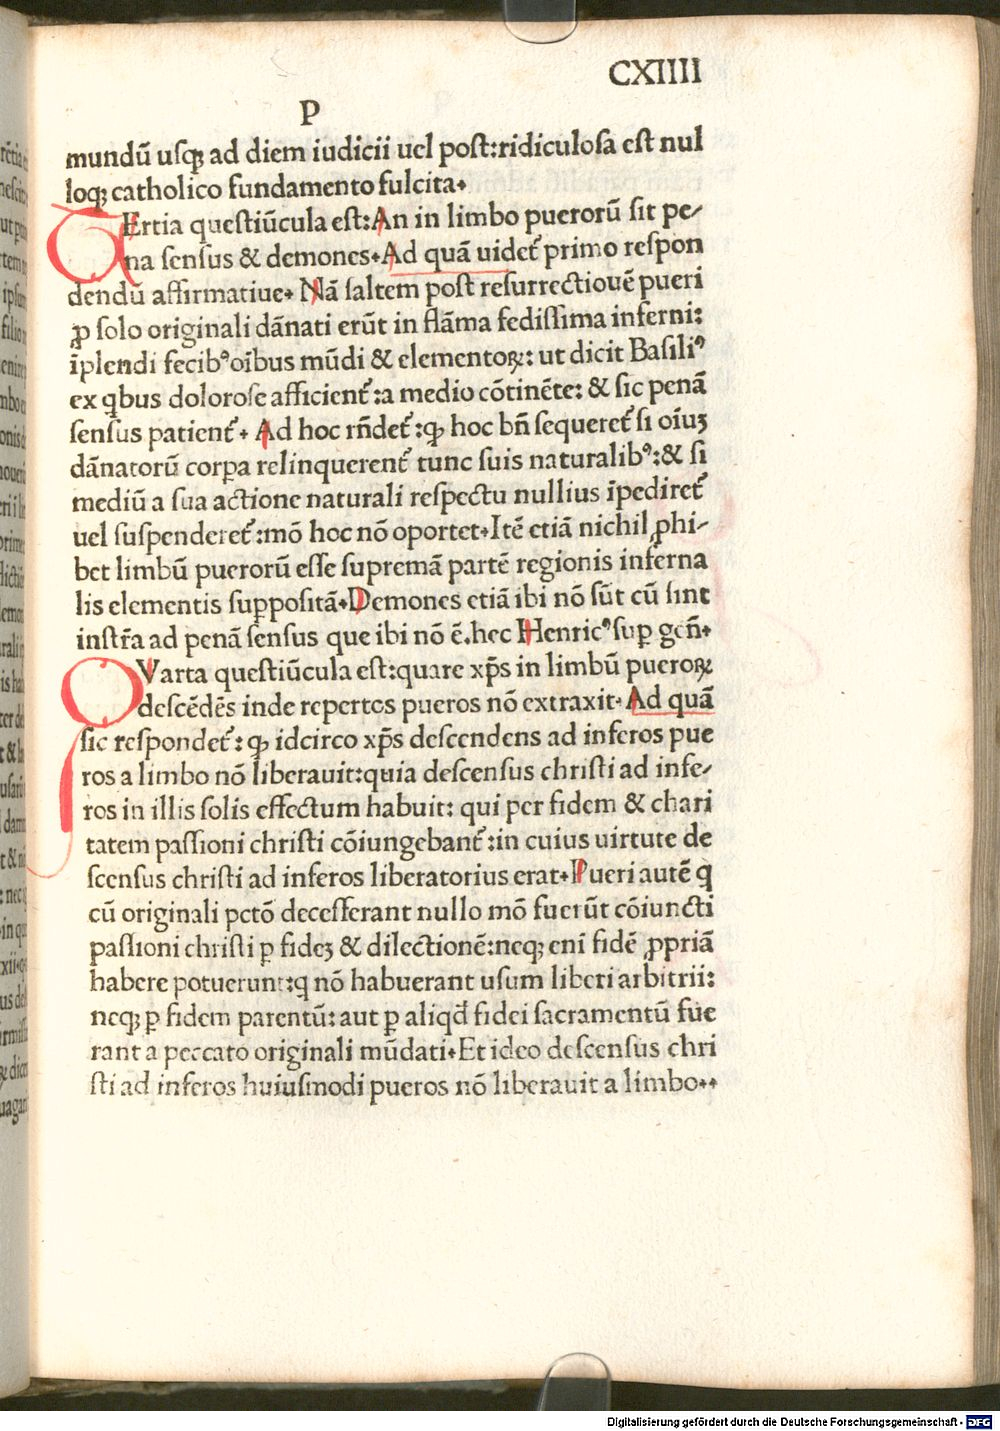 CXIIII
P
mundū uſqꝫ ad diem iudicii uel poſt:ridiculoſa eſt nul
loqꝫ catholico fundamento fulcita.
TErtia queſtiūcula eſt:An in limbo puerorū ſit pe-
na ſenſus & demones.Ad quā uidet᷑ primo reſpon
dendū affirmatiue. Nā ſaltem poſt reſurrectiouē pueri
ꝓ ſolo originali dānati erūt in flāma fediſſima inferni:
īplendi fecibꝰ oībus mūdi & elementoꝝ: ut dicit Baſiliꝰ
ex qbus doloroſe afficient᷑:a medio cōtinēte: & ſic penā
ſenſus patient᷑. Ad hoc rn̄det᷑:ꝙ hoc bn̄ ſequeret᷑ ſi oīuꝫ
dānatorū corꝑa relinquerent᷑ tunc ſuis naturalibꝰ:& ſi
mediū a ſua actione naturali reſpectu nullius īpediret᷑
uel ſuſpenderet᷑:mō hoc nō oportet.Itē etiā nichil ꝓhi-
bet limbū puerorū eſſe ſupremā partē regionis inferna
lis elementis ſuppoſitā.Demones etiā ibi nō ſūt cū ſint
inſtr̄a ad penā ſenſus que ibi nō ē.hec Henricꝰ ſuꝑ gen̄.
QVarta queſtiūcula eſt:quare xp̄s in limbū pueroꝝ
deſcēdēs inde repertos pueros nō extraxit.Ad quā
ſic reſpondet᷑: ꝙ idcirco xp̄s deſcendens ad inferos pue
ros a limbo nō liberauit:quia deſcenſus chriſti ad infe-
ros in illis ſolis effectum habuit: qui per fidem & chari
tatem paſſioni chriſti cōiungebant᷑:in cuius uirtute de
ſcenſus chriſti ad inferos liberatorius erat.Pueri autē q
cū originali pctō deceſſerant nullo mō fuerūt cōiuncti
paſſioni chriſti ꝑ fideꝫ & dilectionē:neqꝫ eni fidē ꝓpriā
habere potuerunt:q nō habuerant uſum liberi arbitrii:
neqꝫ ꝑ fidem parentū:aut ꝑ aliqd̄ fidei ſacramentū fue
rant a peccato originali mūdati.Et ideo deſcenſus chri
ſti ad inferos huiuſmodi pueros nō liberauit a limbo..
Digitalisierung gefördert durch die Deutsche Forschungsgemeinschaft - DFG